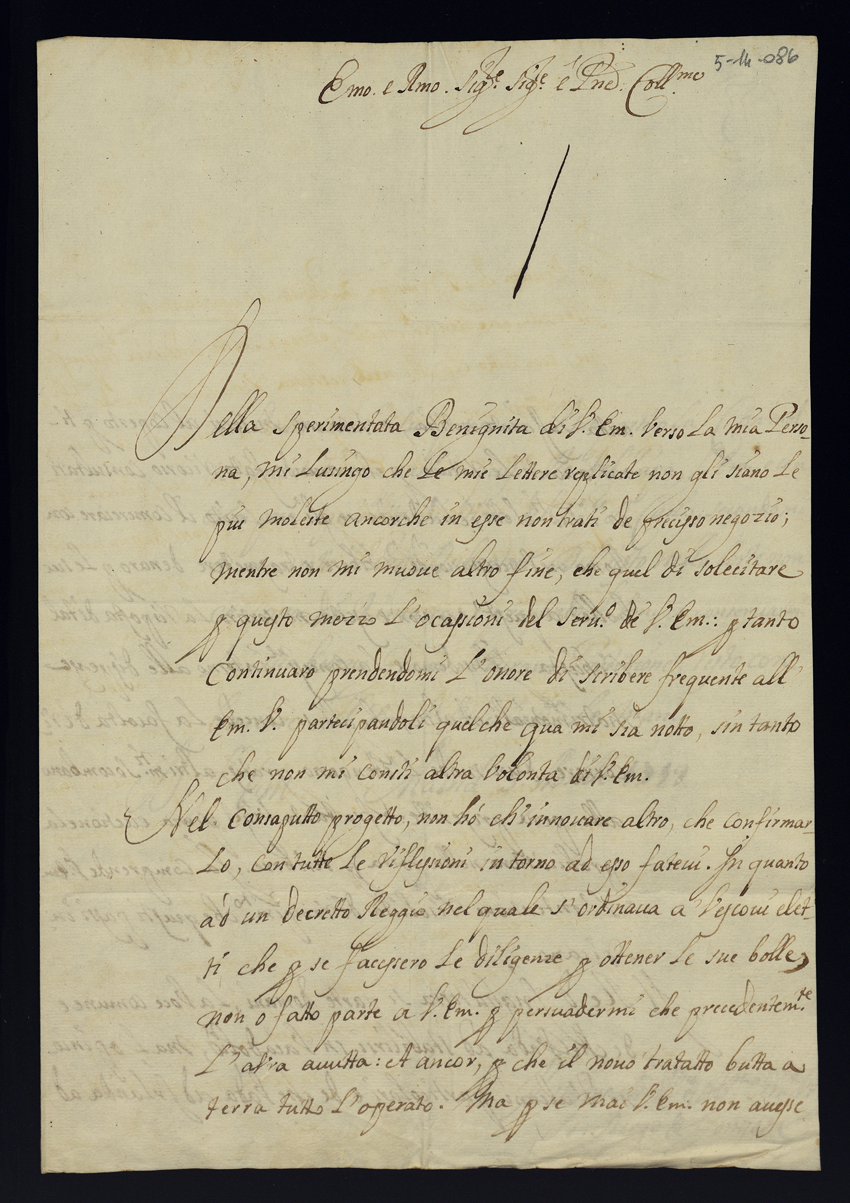 5-14-086
Emo. e Rmo. Sig.re Sig.re e Pne. Coll.mo
Della sperimentata Benignita di V. Em. verso la mia Perso-
na, mi lusingo che le mie lettere replicate non gli siano le
piu moleste ancorche in esse non trati de precisso negozio;
mentre non mi muove altro fine, che quel di solecitare
p questo mezzo l'ocassioni del serv.o de V. Em.: p tanto
continuaro prendendomi l'onore di scribere frequente all'
Em. V. partecipandoli quelche qua mi sia notto, sin tanto
che non mi consti altra volonta di V. Em.
Nel consaputto progetto, non hó ch'innovare altro, che confirmar-
lo, con tutte le riflessioni intorno ad esso fatevi. In quanto
ad un decretto Reggio nel quale s'ordinava a Vescovi elet-
ti che p se facessero le diligenze p ottener le sue bolle,
non ó fatto parte a V. Em. p persuadermi che precedentem.te
l'avra avutta: et ancor, p che il novo tratatto butta a
terra tutto l'operato. Ma p se mai V. Em. non avesse